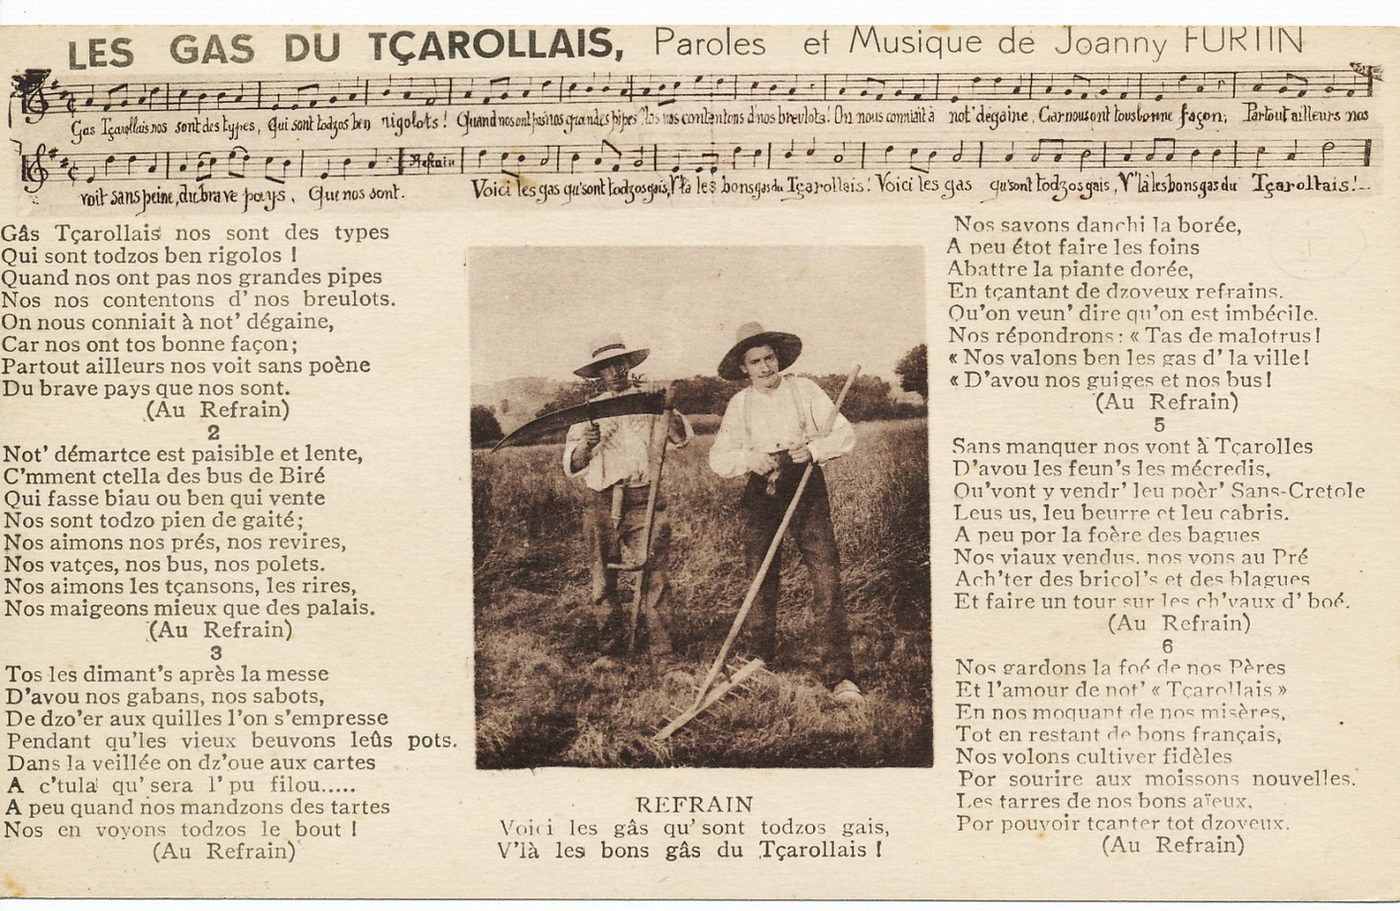 LES GAS DU TÇAROLLAIS, Paroles et Musique de Joanny FURTIN
Gas Tçarollais nos sont des types, Qui sont todzos ben rigolots! Quand nos ont pas nos grandes pipes Nos nos contentons d'nos breulots! On nous conniait à not' dégaine, Car nous ont tous bonne façon; Partout ailleurs nos
voit sans peine, du brave pays, Que nos sont. Refrain Voici les gas qu'sont todzos gais, V'la les bons gas du Tçarollais! Voici les gas qu'sont todzos gais, V'là les bons gas du Tçarollais!
Gâs Tçarollais nos sont des types
Qui sont todzos ben rigolos !
Quand nos ont pas nos grandes pipes
Nos nos contentons d' nos breulots.
On nous conniait à not' dégaine,
Car nos ont tos bonne façon;
Partout ailleurs nos voit sans poène
Du brave pays que nos sont.
(Au Refrain)
2
Not' démartce est paisible et lente,
C'mment ctella des bus de Biré
Qui fasse biau ou ben qui vente
Nos sont todzo pien de gaité;
Nos aimons nos prés, nos revires,
Nos vatçes, nos bus, nos polets.
Nos aimons les tçansons, les rires,
Nos maigeons mieux que des palais.
(Au Refrain)
3
Tos les dimant's après la messe
D'avou nos gabans, nos sabots,
De dzo'er aux quilles l'on s'empresse
Pendant qu'les vieux beuvons leûs pots.
Dans la veillée on dz'oue aux cartes
A c'tula qu' sera l' pu filou.....
A peu quand nos mandzons des tartes
Nos en voyons todzos le bout !
(Au Refrain)
REFRAIN
Voici les gâs qu' sont todzos gais,
V'là les bons gâs du Tçarollais !
Nos savons danchi la borée,
A peu étot faire les foins
Abattre la piante dorée,
En tçantant de dzoveux refrains.
Qu'on veun' dire qu'on est imbécile.
Nos répondrons : « Tas de malotrus !
« Nos valons ben les gas d' la ville !
« D'avou nos guiges et nos bus !
(Au Refrain)
5
Sans manquer nos vont à Tçarolles
D'avou les feun's les mécredis,
Qu'vont y vendr' leu poèr' Sans-Cretole
Leus us, leu beurre et leu cabris.
A peu por la foère des bagues
Nos viaux vendus, nos vons au Pré
Ach'ter des bricol's et des blagues
Et faire un tour sur les ch'vaux d' boé.
(Au Refrain)
6
Nos gardons la foé de nos Pères
Et l'amour de not' « Tçarollais »
En nos moquant de nos misères,
Tot en restant de bons français,
Nos volons cultiver fidèles
Por sourire aux moissons nouvelles.
Les tarres de nos bons aïeux,
Por pouvoir tçanter tot dzoveux.
(Au Refrain)